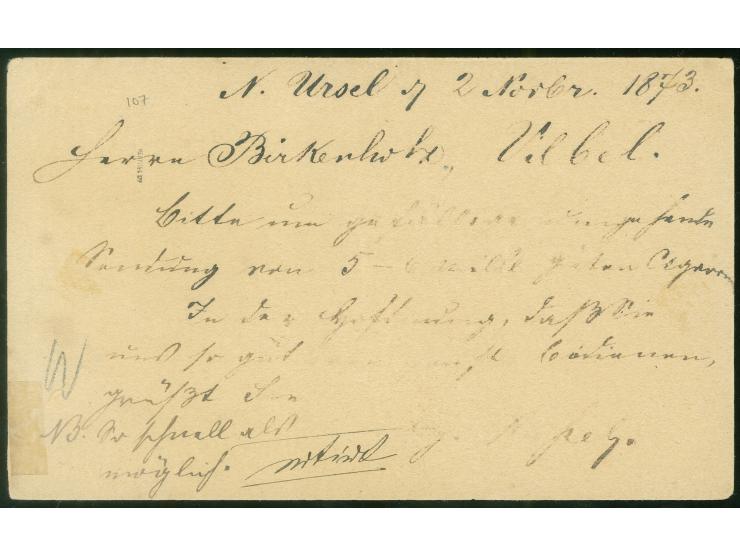 107
N. Ursel d 2 Novbr. 1873.
Herrn Birkenholz, Vilbel.
Bitte um gefällige umgehende
Sendung von 5 – 6 guten Cigarren
In der Hoffnung, daß Sie
uns so gut bedienen,
grüßt Sie
NB. So schnell als
möglich.